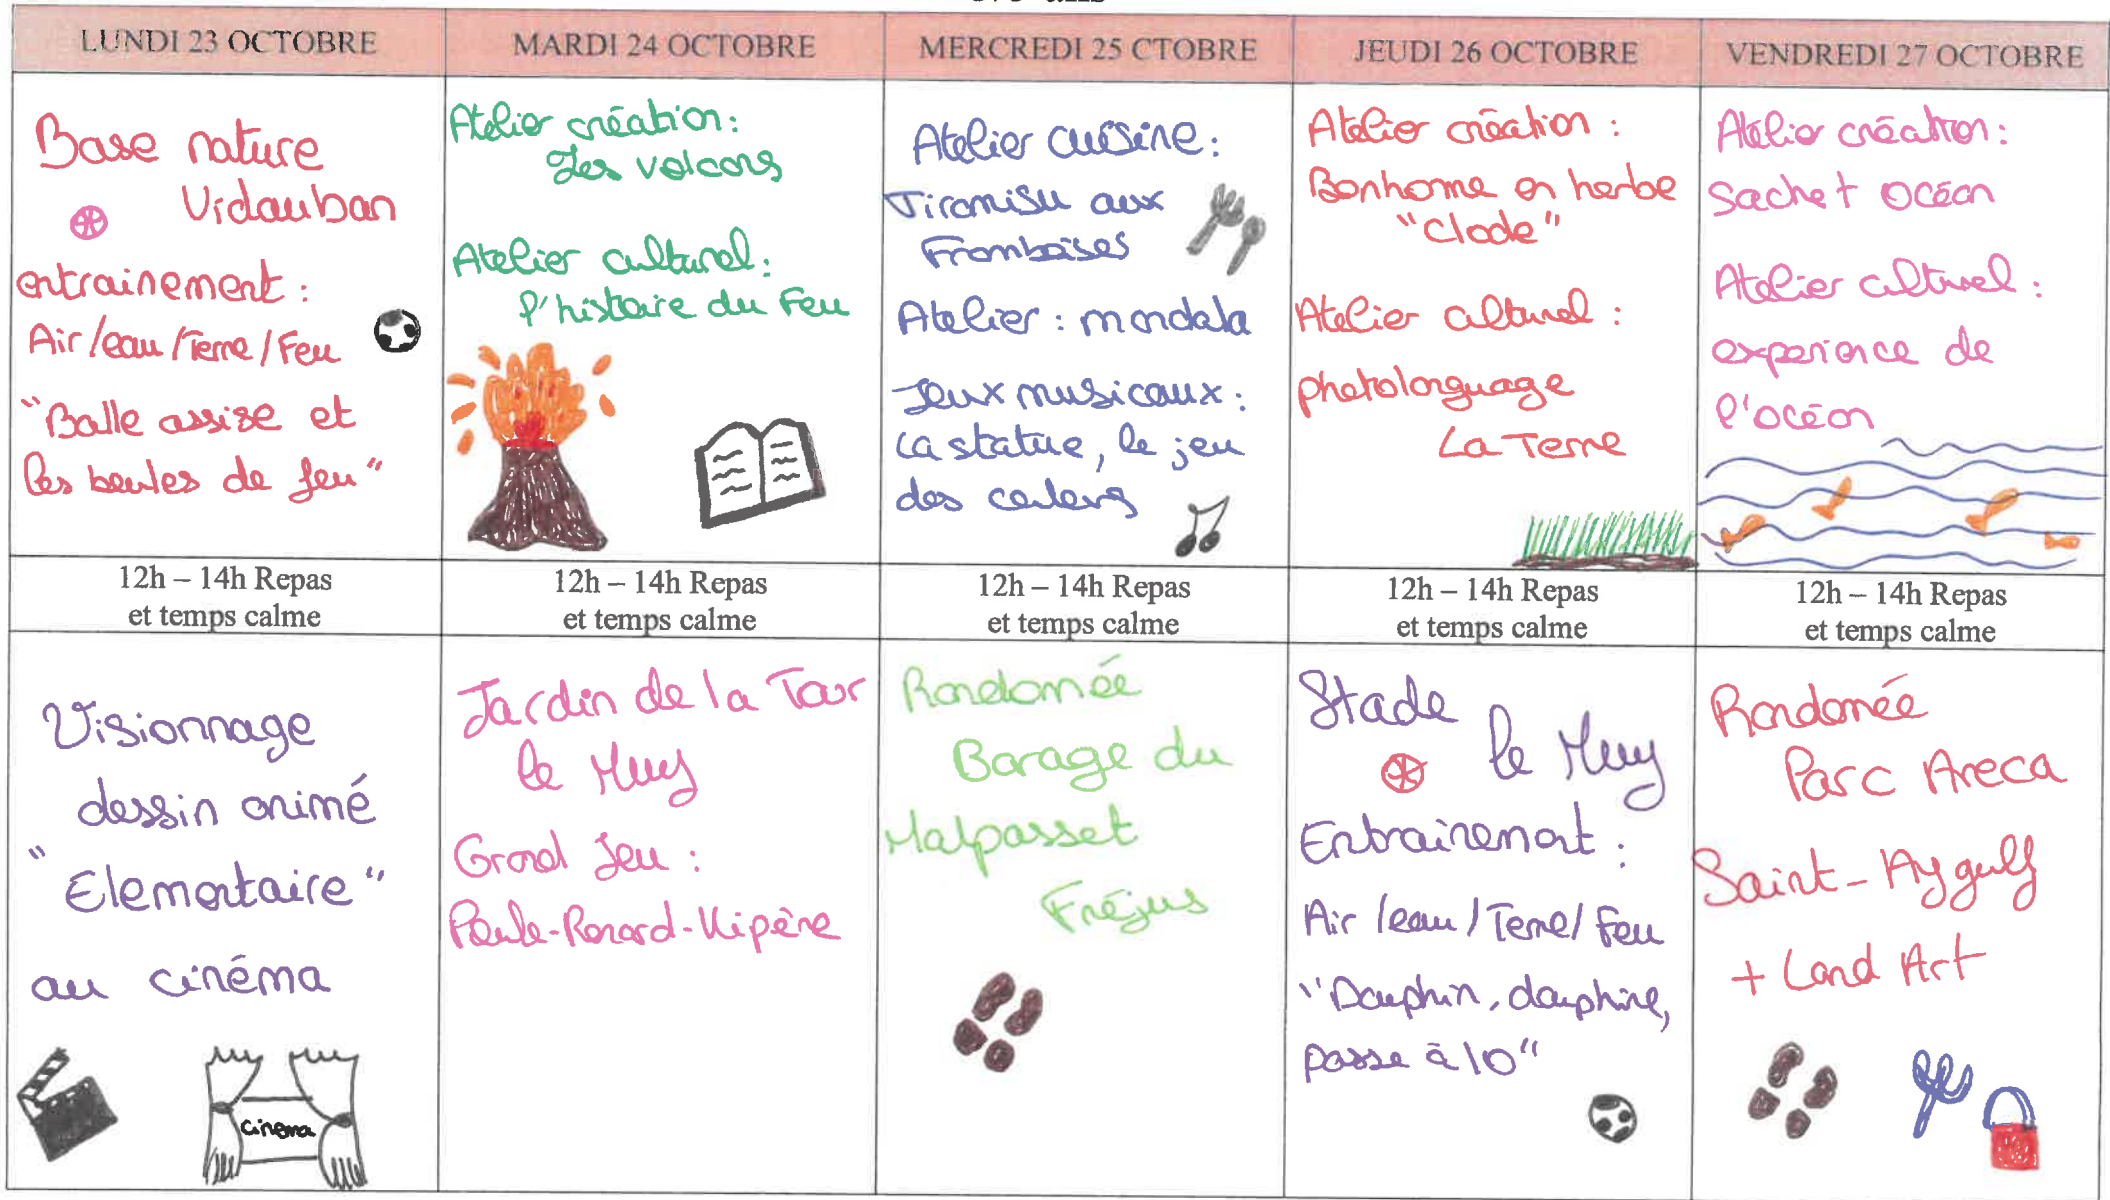 LUNDI 23 OCTOBRE
MARDI 24 OCTOBRE
MERCREDI 25 CTOBRE
JEUDI 26 OCTOBRE
VENDREDI 27 OCTOBRE
Base nature
Vidauban
entrainement :
Air/eau/Terre/Feu
"Balle assise et
les boules de feu"
Atelier création:
Les volcans
Atelier culturel:
l'histoire du Feu
Atelier cuisine:
Tiramisu aux
Framboises
Atelier : mandala
Jeux musicaux:
La statue, le jeu
des couleurs
Atelier création :
Bonhome en herbe
"Clode"
Atelier culturel :
photolanguage
La Terre
Atelier création:
Sachet océan
Atelier culturel :
experience de
l'océan
12h – 14h Repas
et temps calme
12h – 14h Repas
et temps calme
12h – 14h Repas
et temps calme
12h – 14h Repas
et temps calme
12h – 14h Repas
et temps calme
Visionnage
dessin animé
"Elementaire"
au cinéma
cinema
Jardin de la Tour
le Muy
Grand Jeu :
Poule-Renard-Vipère
Randomée
Barage du
Malpasset
Fréjus
Stade
le Muy
Entrainement :
Air/eau/Terre/Feu
"Dauphin, dauphine,
passe à 10"
Randomée
Parc Areca
Saint-Aygulf
+ Land Art